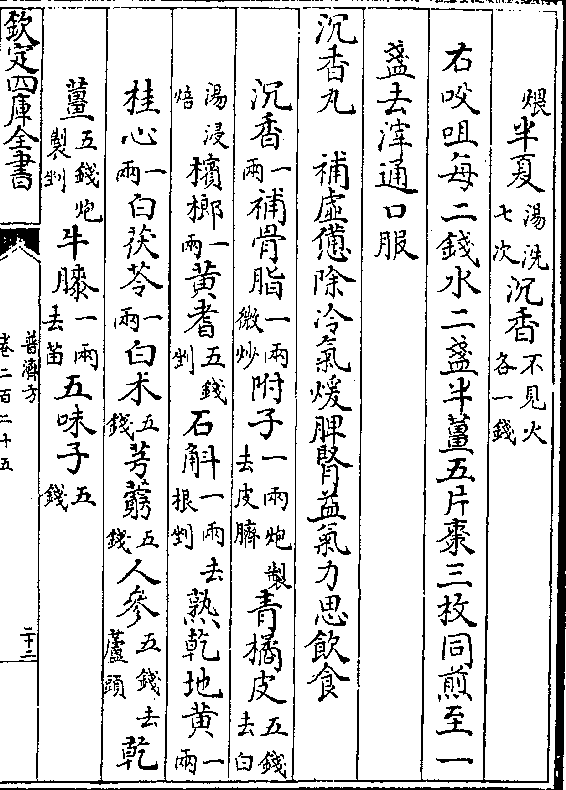 煨半夏湯洗七次沉香不見火各一錢
右㕮咀每二錢水二盞半薑五片棗三枚同煎至一
盞去滓通口服
沉香丸 補虛憊除冷氣煖脾腎益氣力思飲食
沉香一兩補骨脂一兩微炒附子一兩炮製去皮臍青橘皮五錢去白
湯浸焙檳榔一兩黃耆五錢剉石斛一兩去根剉熟乾地黃一兩
桂心一兩白茯苓一兩白术五錢芎藭五錢人參五錢去蘆頭乾
薑五錢炮製剉牛膝一兩去苗五味子五錢
欽定四庫全書
普濟方
卷二百二十五
二十三